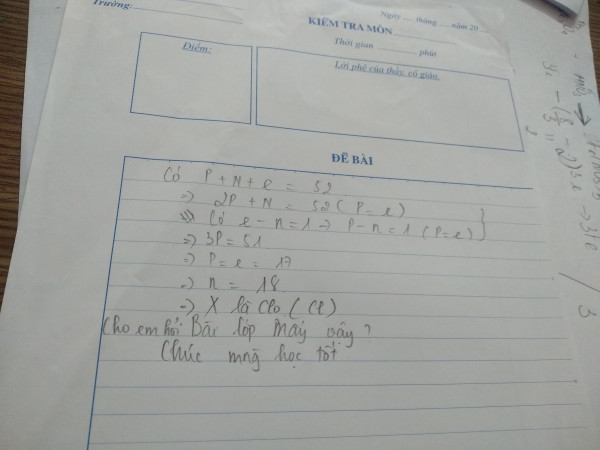 Trường:
Ngày .... tháng .... năm 20
KIỂM TRA MÔN
Thời gian phút
Điểm:
Lời phê của thầy, cô giáo.
ĐỀ BÀI
Có P + N + e = 52
=> 2P + N = 52 (P = e)
Có e - n = 1 -> P - n = 1 (P = e) }
=> 3P = 51
=> P = e = 17
=> n = 18
=> X là Clo (Cl)
Cho em hỏi Bài lớp mấy vậy ?
Chúc mng học tốt